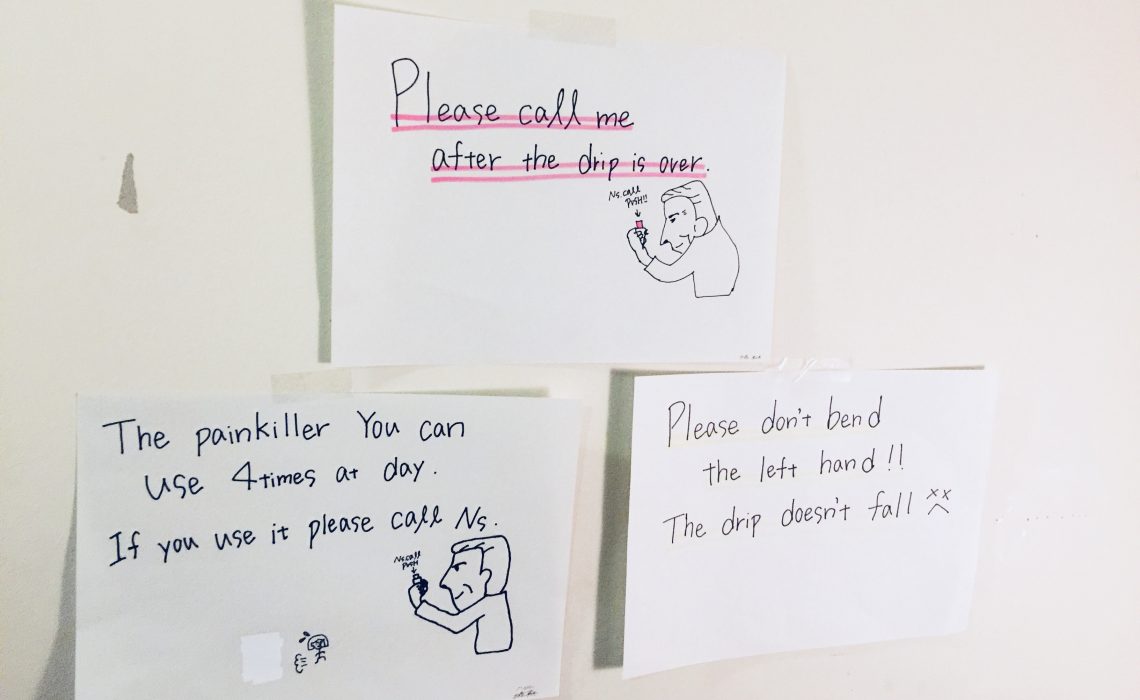 Please call me
after the drip is over.
Ns.call
PUSH!!
The painkiller You can
use 4times at day.
If you use it please call Ns.
Ns.call
PUSH
Please don't bend
the left hand!!
The drip doesn't fall